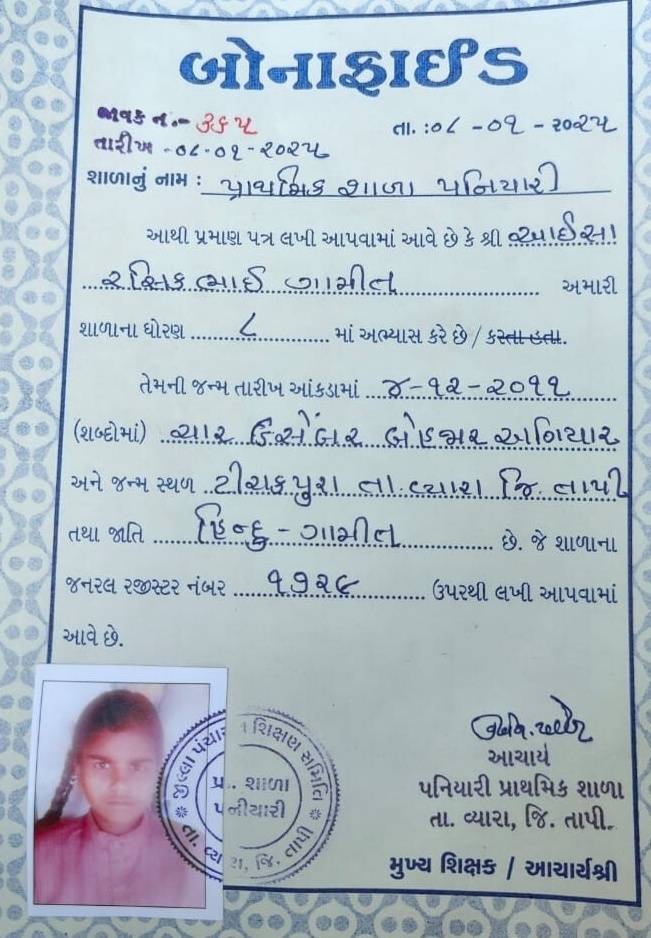 બોનાફાઈડ
જાવક નં.- ૩૬૫
તા. : ૦૮ - ૦૧ - ૨૦૨૫
તારીખ - ૦૮-૦૧-૨૦૨૫
શાળાનું નામ : પ્રાથમિક શાળા પનિયારી
આથી પ્રમાણ પત્ર લખી આપવામાં આવે છે કે શ્રી આઈસા
રસિકભાઈ ગામીત અમારી
શાળાના ધોરણ ૮ માં અભ્યાસ કરે છે / કરતા હતા.
તેમની જન્મ તારીખ આંકડામાં ૪-૧૨-૨૦૧૧
(શબ્દોમાં) ચાર ડિસેંબર બેહજાર અગિયાર
અને જન્મ સ્થળ ટીચકપુરા તા. વ્યારા જિ. તાપી
તથા જાતિ હિન્દુ - ગામીત છે. જે શાળાના
જનરલ રજીસ્ટર નંબર ૧૭૨૯ ઉપરથી લખી આપવામાં
આવે છે.
જીલ્લા પંચાયત શિક્ષણ સમિતિ
પ્રા. શાળા
પનીયારી
તા. વ્યારા, જિ. તાપી
આચાર્ય
પનિયારી પ્રાથમિક શાળા
તા. વ્યારા, જિ. તાપી.
મુખ્ય શિક્ષક / આચાર્યશ્રી